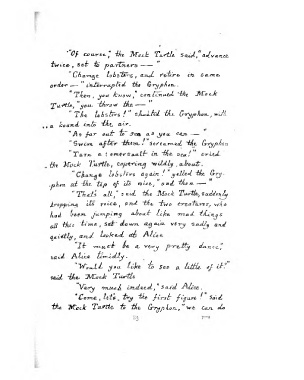 "Of course," the Mock Turtle said, "advance
twice, set to partners —"
"Change lobsters, and retire in same
order —" interrupted the Gryphon.
"Then, you know," continued the Mock
Turtle, "you throw the —"
"The lobsters!" shouted the Gryphon, with
a bound into the air.
"As far out to sea as you can —"
"Swim after them!" screamed the Gryphon
"Turn a somersault in the sea!" cried
the Mock Turtle, capering wildly about.
"Change lobsters again!" yelled the Gry-
phon at the top of its voice, "and then —"
"That's all," said the Mock Turtle, suddenly
dropping its voice, and the two creatures, who
had been jumping about like mad things
all this time, sat down again very sadly and
quietly, and looked at Alice.
"It must be a very pretty dance,"
said Alice timidly.
"Would you like to see a little of it?"
said the Mock Turtle
"Very much indeed," said Alice.
"Come, let's try the first figure!" said
the Mock Turtle to the Gryphon, "we can do